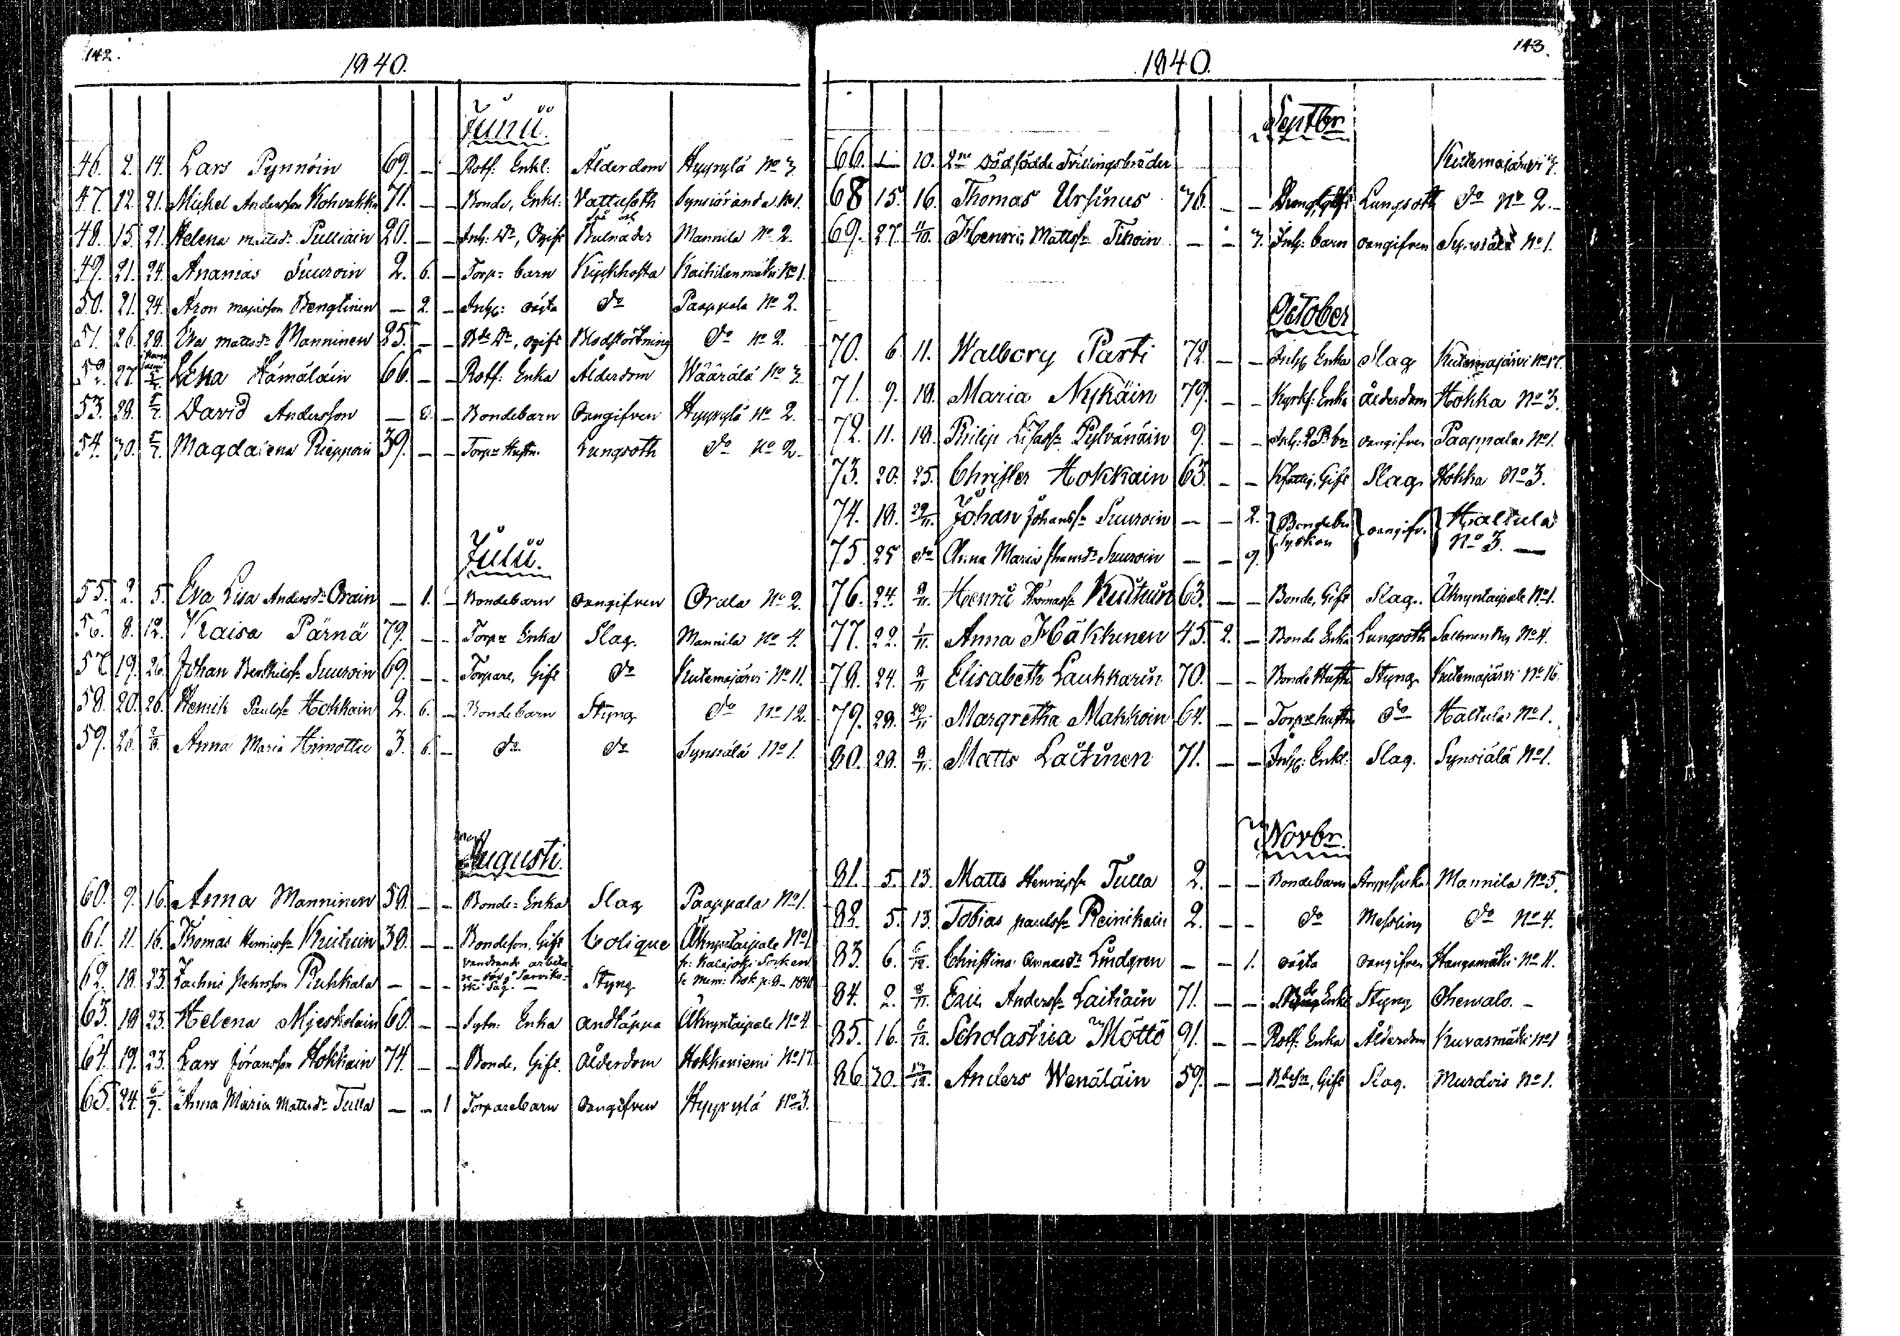 142.
1840.
Junii.
46. 2. 14. Lars Pynnöin 69. – – Rotf: Enkl: Ålderdom Hyyrylä No 3.
47. 12. 21. Michel Andersson Kohvakka 71. – – Bonde, Enkl. Vattusoth No 1.
48. 15. 21. Helena mattsdr Pulliain 20. – – Inh: Dr, Ogift Bulnader Mannila No 2.
49. 21. 24. Ananias Suuroin 2. 6. – Torp: barn Kikhosta Kaitilanmäki No 1.
50. 21. 24. Aron Benglinen – 2. – Inh: do Paappala No 2.
51. 26. 28. Eva mattsdr Manninen 25. – – Bde Dr, ogift Blodstörtning do No 2.
52. 27. Lena Hämäläin 66. – – Rotf: Enka Ålderdom Wäärälä No 3.
53. 28. 5/7. David Andersson – 8. – Bondebarn Oangifven Hyyrylä No 2.
54. 30. 5/7. Magdalena Rieppoin 39. – – Torpr Hustru. Lungsoth do No 2.
Julii.
55. 2. 5. Eva Lisa Andersdr Orain – 1. – Bondebarn oangifven Orala No 2.
56. 8. 12. Kaisa Pärnä 79. – – Torpr Enka Slag. Mannila No 4.
57. 19. 26. Johan Suuroin 69. – – Torpare, Gift do Kutemajärvi No 11.
58. 20. 26. Henrik Paulss. Hokkain 2. 6. – Bondebarn Styng do No 12.
59. 26. 2/8. Anna Maria Himottu 3. 6. – do do Synsiälä No 1.
Augusti.
60. 9. 16. Anna Manninen 58. – – Bonde-Enka Slag Paappala No 1.
61. 11. 16. Thomas Henricss. Kuituin 38. – – Bondeson, Gift Colique Äkryntaipale No 1.
62. 18. 23. Ruhkala – – – vandrande Styng
63. 18. 23. Helena Mjeskolain 60. – – Sytn: Enka andtäppa Äkryntaipale No 4.
64. 19. 23. Lars Jöransson Hokkain 74. – – Bonde, Gift. Ålderdom Hokkaniemi No 17.
65. 24. 6/9. Anna Maria Mattsdr Tulla – – 1 Torparebarn oangifven Hyyrylä No 3.
143.
1840.
Septbr
66. 1 10. 2ne dödfödde Tvillingsbröder Kutemajärvi 7.
68 15. 16. Thomas Ursinus 76. – – Lungsoth do No 2. –
69. 27. 11/10. Henric Mattss. Tihoin – – 3. Inh: barn oangifven Synsiälä No 1.
October
70. 6. 11. Walbory Parti 72. – – Inhs Enka Slag Kutemajärvi No 17.
71. 9. 18. Maria Nykäin 79. – – Kyrkf: Enka ålderdom Hokka No 3.
72. 11. 18. Philip Pylvänäin 9. – – oangifven Paappala No 1.
73. 20. 25. Christer Hokkain 63. – – Gift Slag. Hokka No 3.
74. 18. 29/11. Johan Johanss. Suuroin – – 2. Bondebn Syskon oangifv. Haltula No 3. –
75. 25 do Anna Maria Suuroin – – 9.
76. 24. 8/11. Henric Thomass. Kuituin 63. – – Bonde, Gift Slag. Äkryntaipale No 1.
77. 22. 1/11. Anna Häkkinen 45. 2. – Bonde Enka Lungsoth No 4.
78. 24. 8/11. Elisabeth Laukkarin 70. – – Bonde Hustru Styng Kutemajärvi No 16.
79. 28. Margretha Makkoin 64. – – Torpr hustru do Haltula No 1.
80. 28. 8/11. Matts Laitinen 71. – – Inhs: Enkl: Slag. Synsiälä No 1.
Novbr.
81. 5. 13. Matts Henricss. Tulla 2. – – Bondebarn Mannila No 5.
82. 5. 13. Tobias paulss. Reinikain 2. – – do Messling do No 4.
83. 6. 6/12. Christina Lindgren – – 1. oägta oangifven Haugamäki No 11.
84. 2. 8/11. Eric Anderss. Laitiain 71. – – Enkl Styng
85. 16. 6/12. Scholastica Möttö 91. – – Rotf: Enka Ålderdom Kuvasmäki No 1
86. 20. Anders Wenäläin 59. – – Gift Slag. No 1.